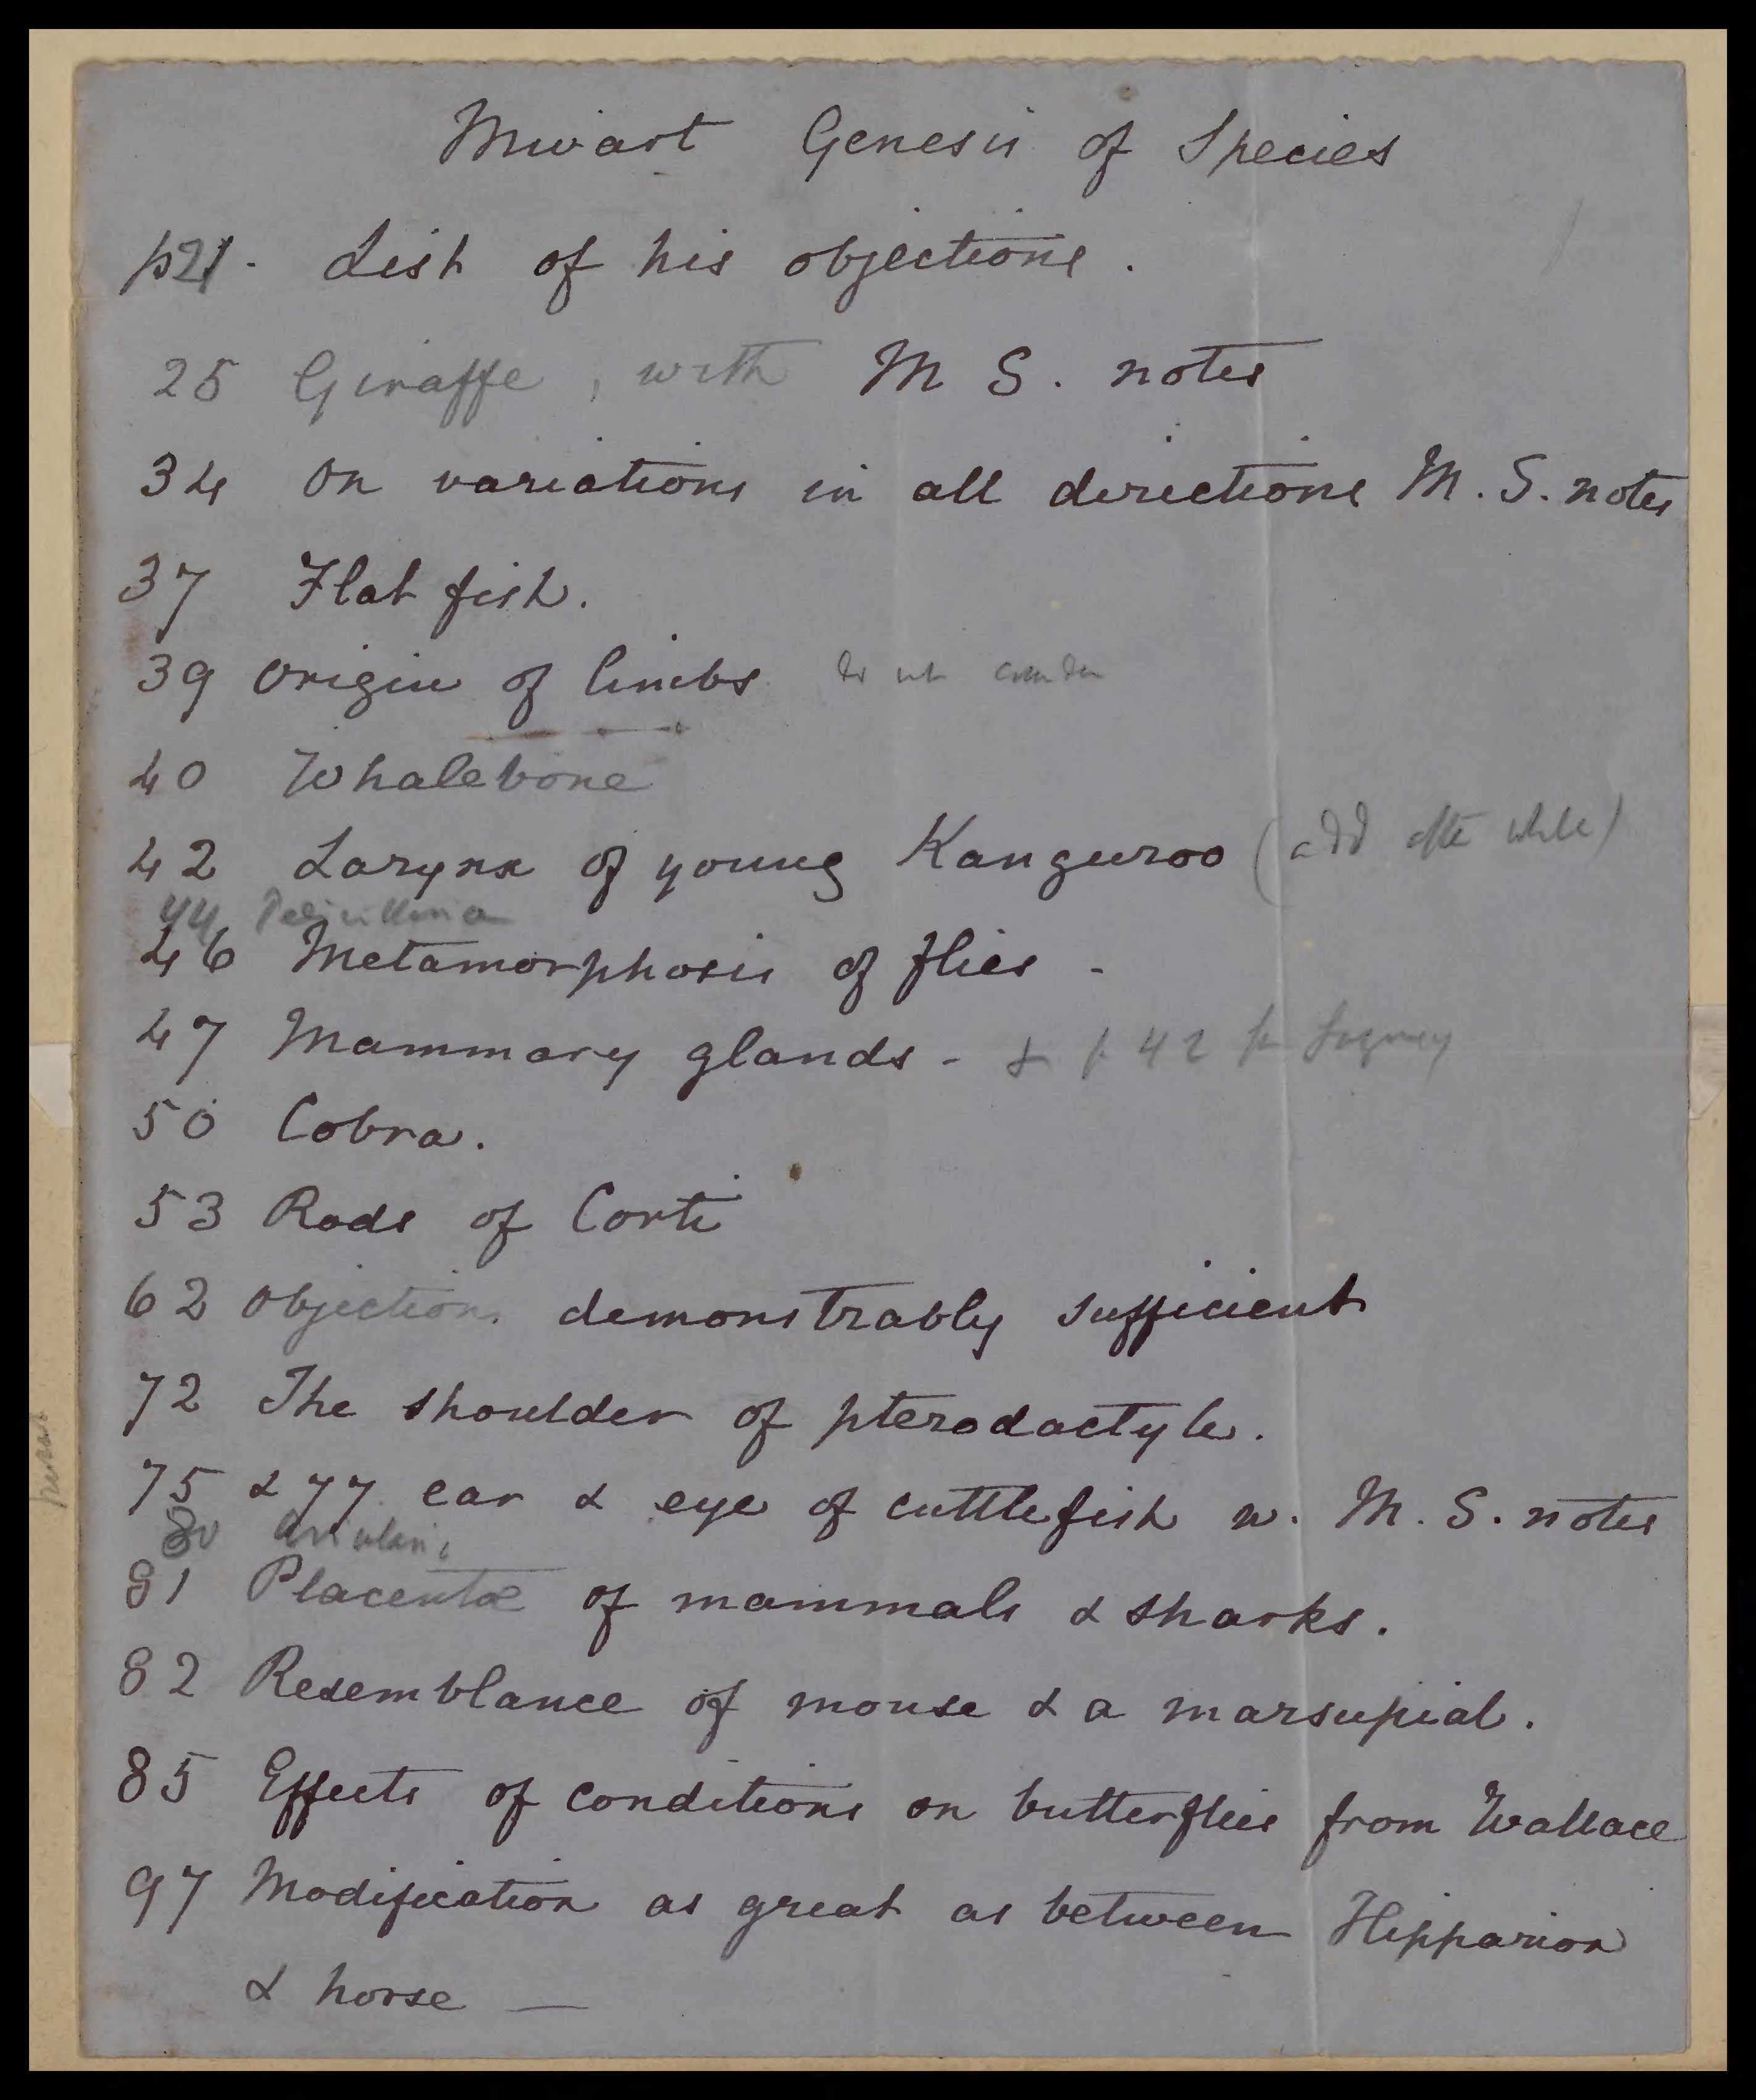 Mivart Genesis of Species
p21. List of his objections.
25 Giraffe, with M S. notes
34 On variations in all directions M. S. notes
37 Flat fish.
39 Origin of limbs do not
40 Whalebone
42 Larynx of young Kanguroo (add after whale)
44 Pedicillaria
46 Metamorphosis of flies -
47 Mammary glands - & p 42 for
50 Cobra.
53 Rods of Corti
62 Objections demonstrably sufficient
72 The shoulder of pterodactyle.
75 & 77 ear & eye of cuttlefish w. M. S. notes
80 Avicularia
81 Placentæ of mammals & sharks.
82 Resemblance of mouse & a marsupial.
85 Effects of conditions on butterflies from Wallace
97 Modification as great as between Hipparion
& horse —